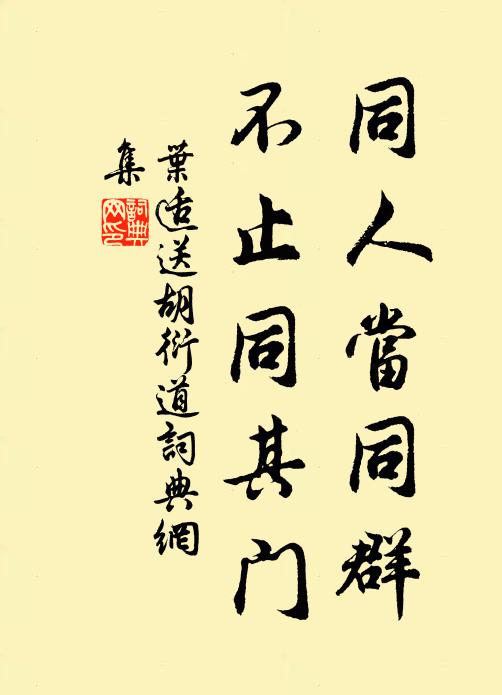 同人當同群
不止同其门
葉适送胡衍道詞典網
集
詞典
网印